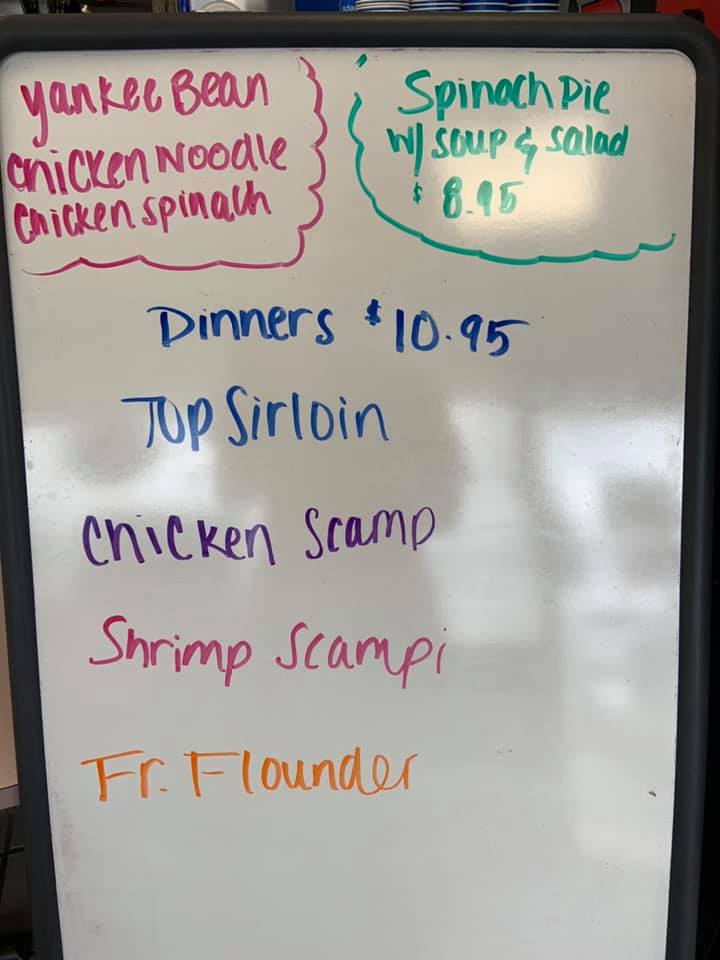 Yankee Bean
Chicken Noodle
Chicken spinach
Spinach Pie
w/ soup & salad
$ 8.95
Dinners $10.95
Top Sirloin
Chicken Scamp
Shrimp Scampi
Fr. Flounder